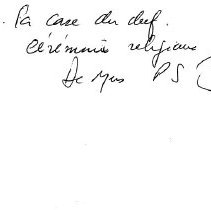 . Pa case du def.
cérémonie religieuse
De Mrs P S (